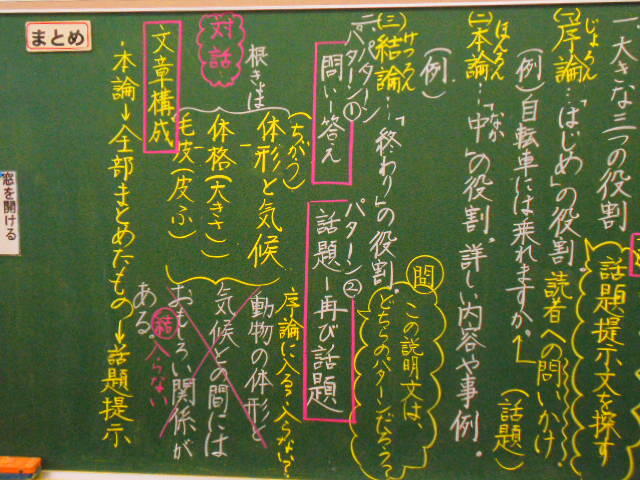 一 大きな三つの役割
(一)序論…「はじめ」の役割。
じょろん
話題提示文を探す
(例)自転車には乗れますか。
読者への問いかけ
(話題)
(二)本論…「中」の役割。詳しい内容や事例。
ほんろん
なか
(例)
(三)結論…「終わり」の役割。
けつろん
問
この説明文は、
どちらのパターンだろう?
二、パターン
パターン①
問い―答え
パターン②
話題―再び話題
対話…
根きょは
(ちがう)
体形と気候
体格(大きさ)
毛皮(皮ふ)
序論に入る?入らない?
動物の体形と
気候との間には
おもしろい関係が
ある。
結
入らない
文章構成
・本論→全部まとめたもの→話題提示
まとめ
窓を開ける